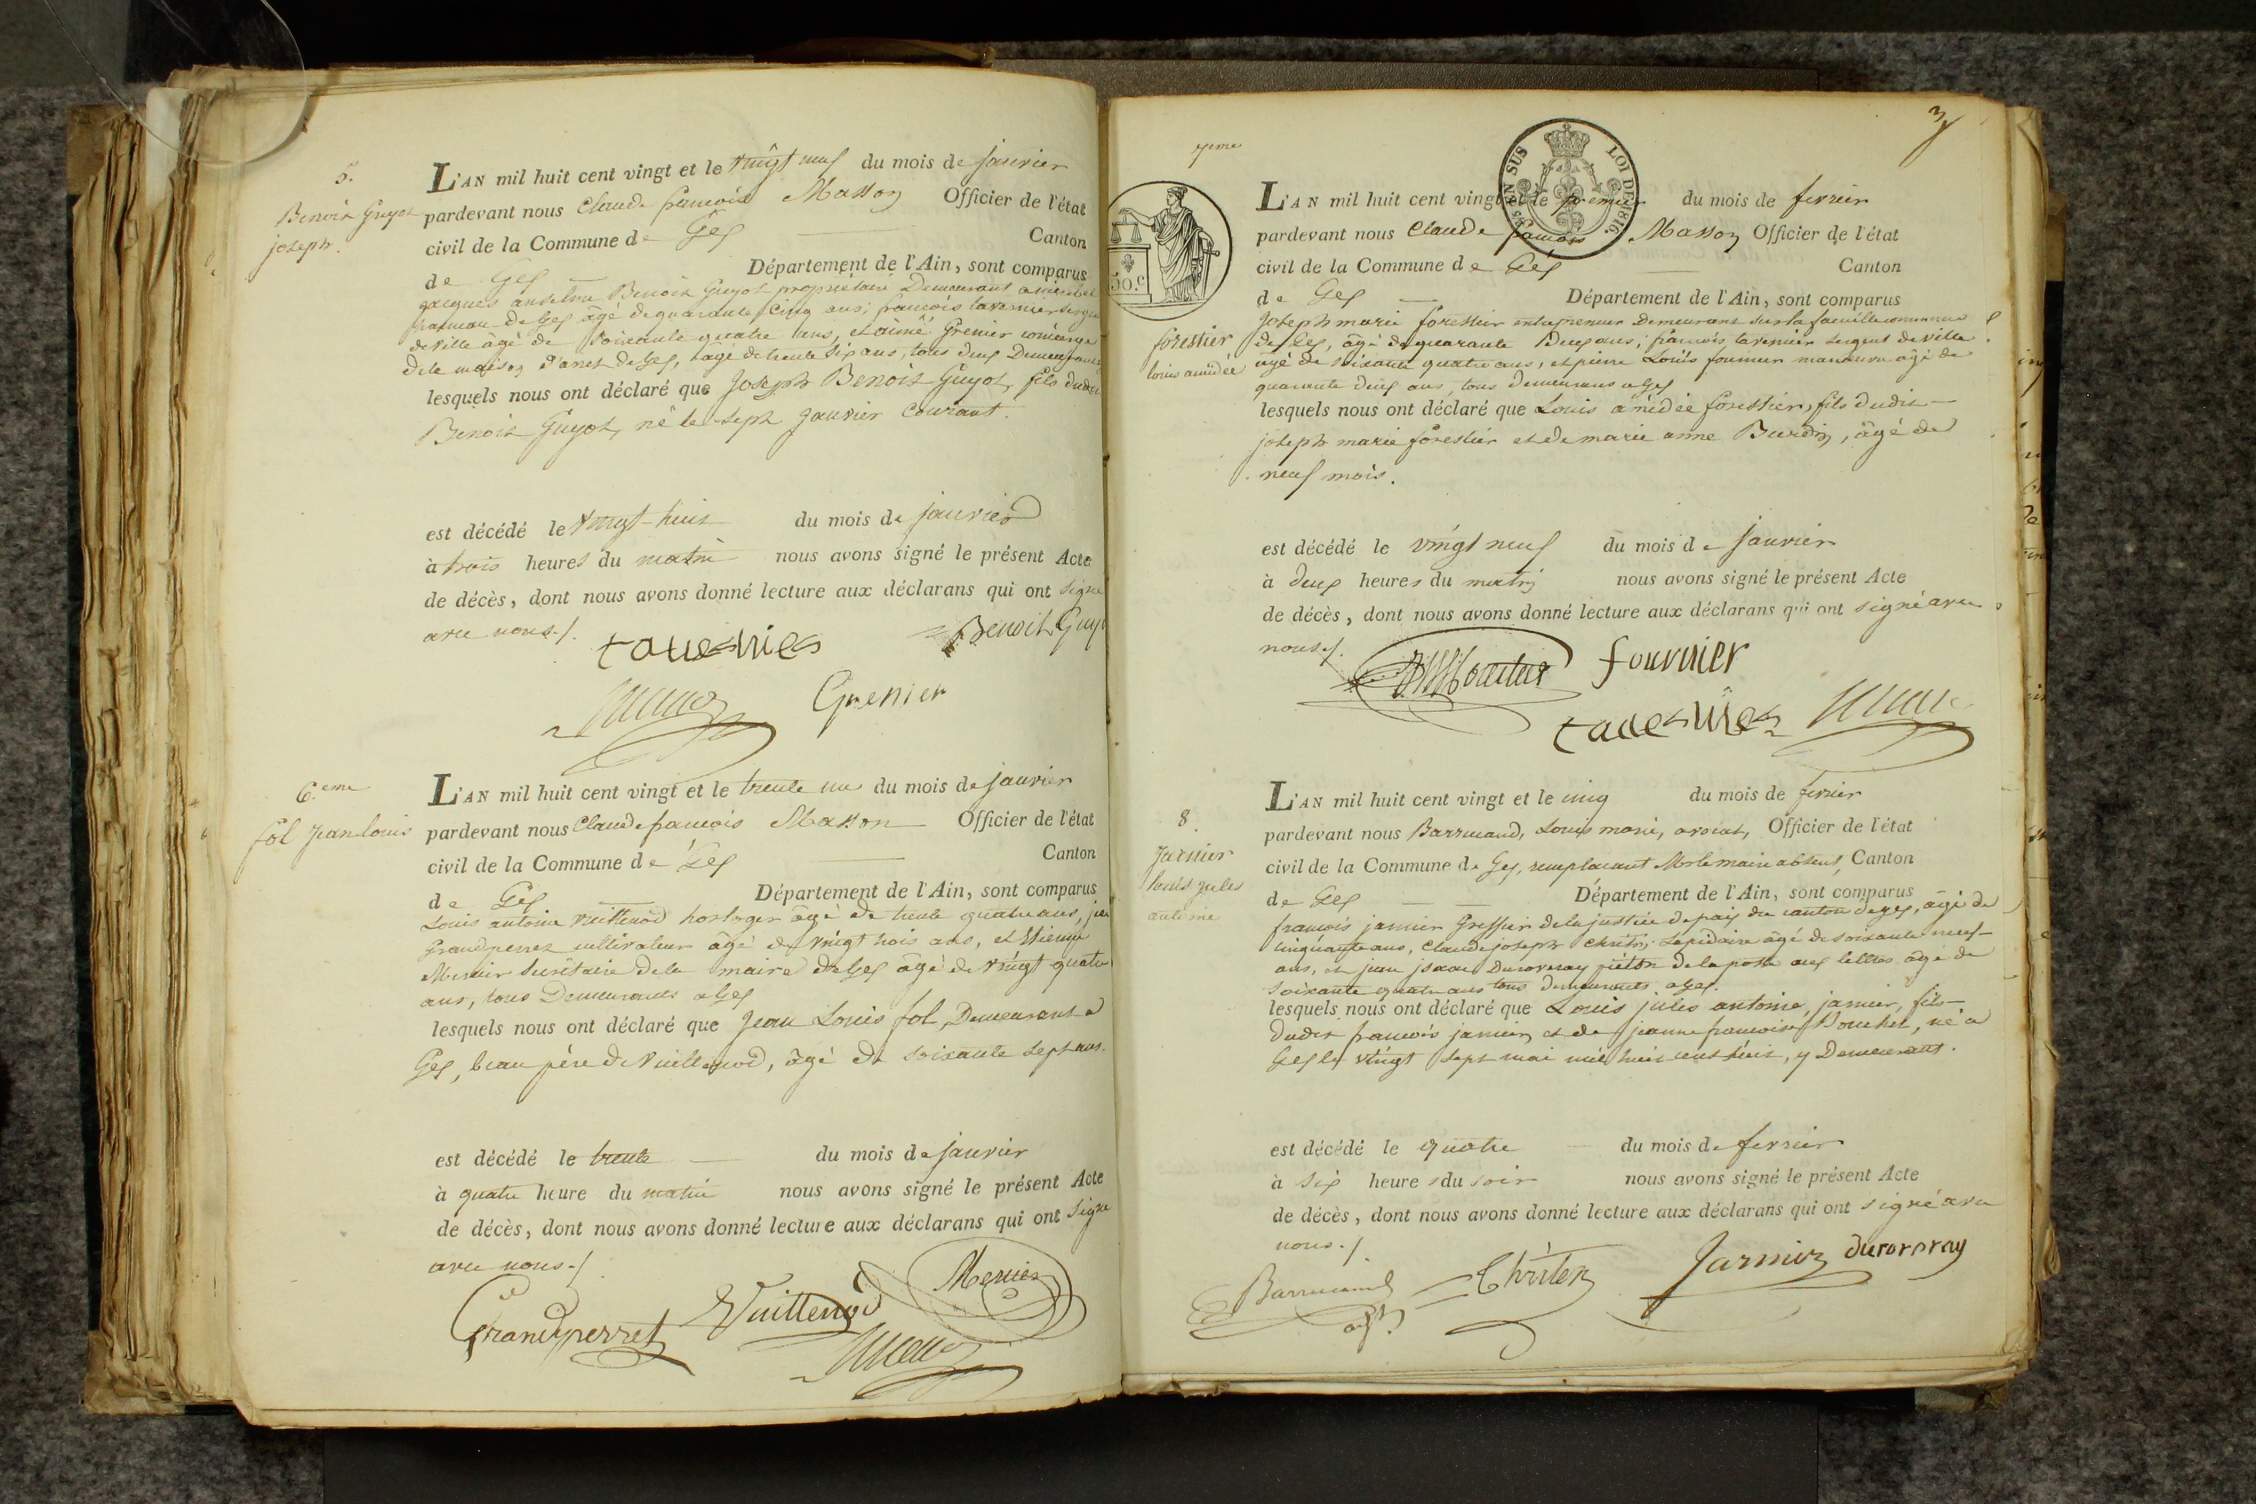 5.
Benoit Guyot
joseph.
L'AN mil huit cent vingt et le vingt neuf du mois de janvier
pardevant nous Claude françois Masson Officier de l'état
civil de la Commune de Gex Canton
de Gex Département de l'Ain, sont comparus
jacques anselme Benoit Guyot propriétaire Demeurant a
hameau de Gex âgé de quarante cinq ans; françois tavernier sergent
de ville âgé de soixante quatre ans, et aimé Grenier concierge
de la maison d'arret de Gex, agé de trente six ans, tous deux Demeurants
lesquels nous ont déclaré que Joseph Benoit Guyot, fils dudit
Benoit Guyot, né le sept janvier courant.
est décédé le vingt-huit du mois de janvier
à trois heures du matin nous avons signé le présent Acte
de décès, dont nous avons donné lecture aux déclarans qui ont signé
avec nous./.
tavernier Benoit Guyot
Grenier
6.eme
fol jean louis
L'AN mil huit cent vingt et le trente un du mois de janvier
pardevant nous Claude françois Masson Officier de l'état
civil de la Commune de Gex Canton
de Gex Département de l'Ain, sont comparus
Louis antoine Vuillenod horloger âgé de trente quatre ans, jean
Grandperret cultivateur âgé de vingt trois ans, et Etienne
Mercier Secrétaire de la maire de Gex âgé de vingt-quatre
ans, tous Demeurants a Gex
lesquels nous ont déclaré que Jean Louis fol, Demeurant a
Gex, beau père de Vuillenod, âgé de soixante sept ans.
est décédé le trente du mois de janvier
à quatre heure du matin nous avons signé le présent Acte
de décès, dont nous avons donné lecture aux déclarans qui ont signé
avec nous./.
Grandperret Vuillenod Mercier
3
7eme
EN SUS LOI DE 1816.
50.c
forestier
louis amédée
L'AN mil huit cent vingt et le premier du mois de fevrier
pardevant nous Claude françois Masson Officier de l'état
civil de la Commune de Gex Canton
de Gex Département de l'Ain, sont comparus
Joseph marie forestier entrepreneur Demeurant sur la
de Gex, âgé de quarante Deux ans; françois tavernier sergent de ville
âgé de soixante quatre ans, et pierre Louis fournier manœuvre âgé de
quarante deux ans, tous demeurans a Gex
lesquels nous ont déclaré que Louis amédée forestier, fils dudit
joseph marie forestier et de marie anne Burdin, âgé de
neuf mois.
est décédé le vingt neuf du mois de janvier
à deux heures du matin nous avons signé le présent Acte
de décès, dont nous avons donné lecture aux déclarans qui ont signé avec
nous./.
fournier
tavernier
8.
Jarnier
louis jules
antoine
L'AN mil huit cent vingt et le cinq du mois de fevrier
pardevant nous Barruand, Louis marie, avocat, Officier de l'état
civil de la Commune de Gex, remplacant Mr le maire absent, Canton
de Gex Département de l'Ain, sont comparus
françois jarnier Greffier de la justice de paix du canton de gex, âgé de
cinquante ans, Claude joseph Christin, Lapidaire âgé de soixante neuf
ans, et jean jsaac Duroveray piéton de la poste aux lettres âgé de
soixante quatre ans tous demeurants a Gex.
lesquels nous ont déclaré que Louis jules antoine, jarnier, fils
dudit françois jarnier, et de jeanne françoise Bouchet, né a
Gex le vingt sept mai mil huit cent huit, y Demeurant.
est décédé le quatre du mois de fevrier
à six heures du soir nous avons signé le présent Acte
de décès, dont nous avons donné lecture aux déclarans qui ont signé avec
nous./.
Barruand Christin Jarnier duroveray